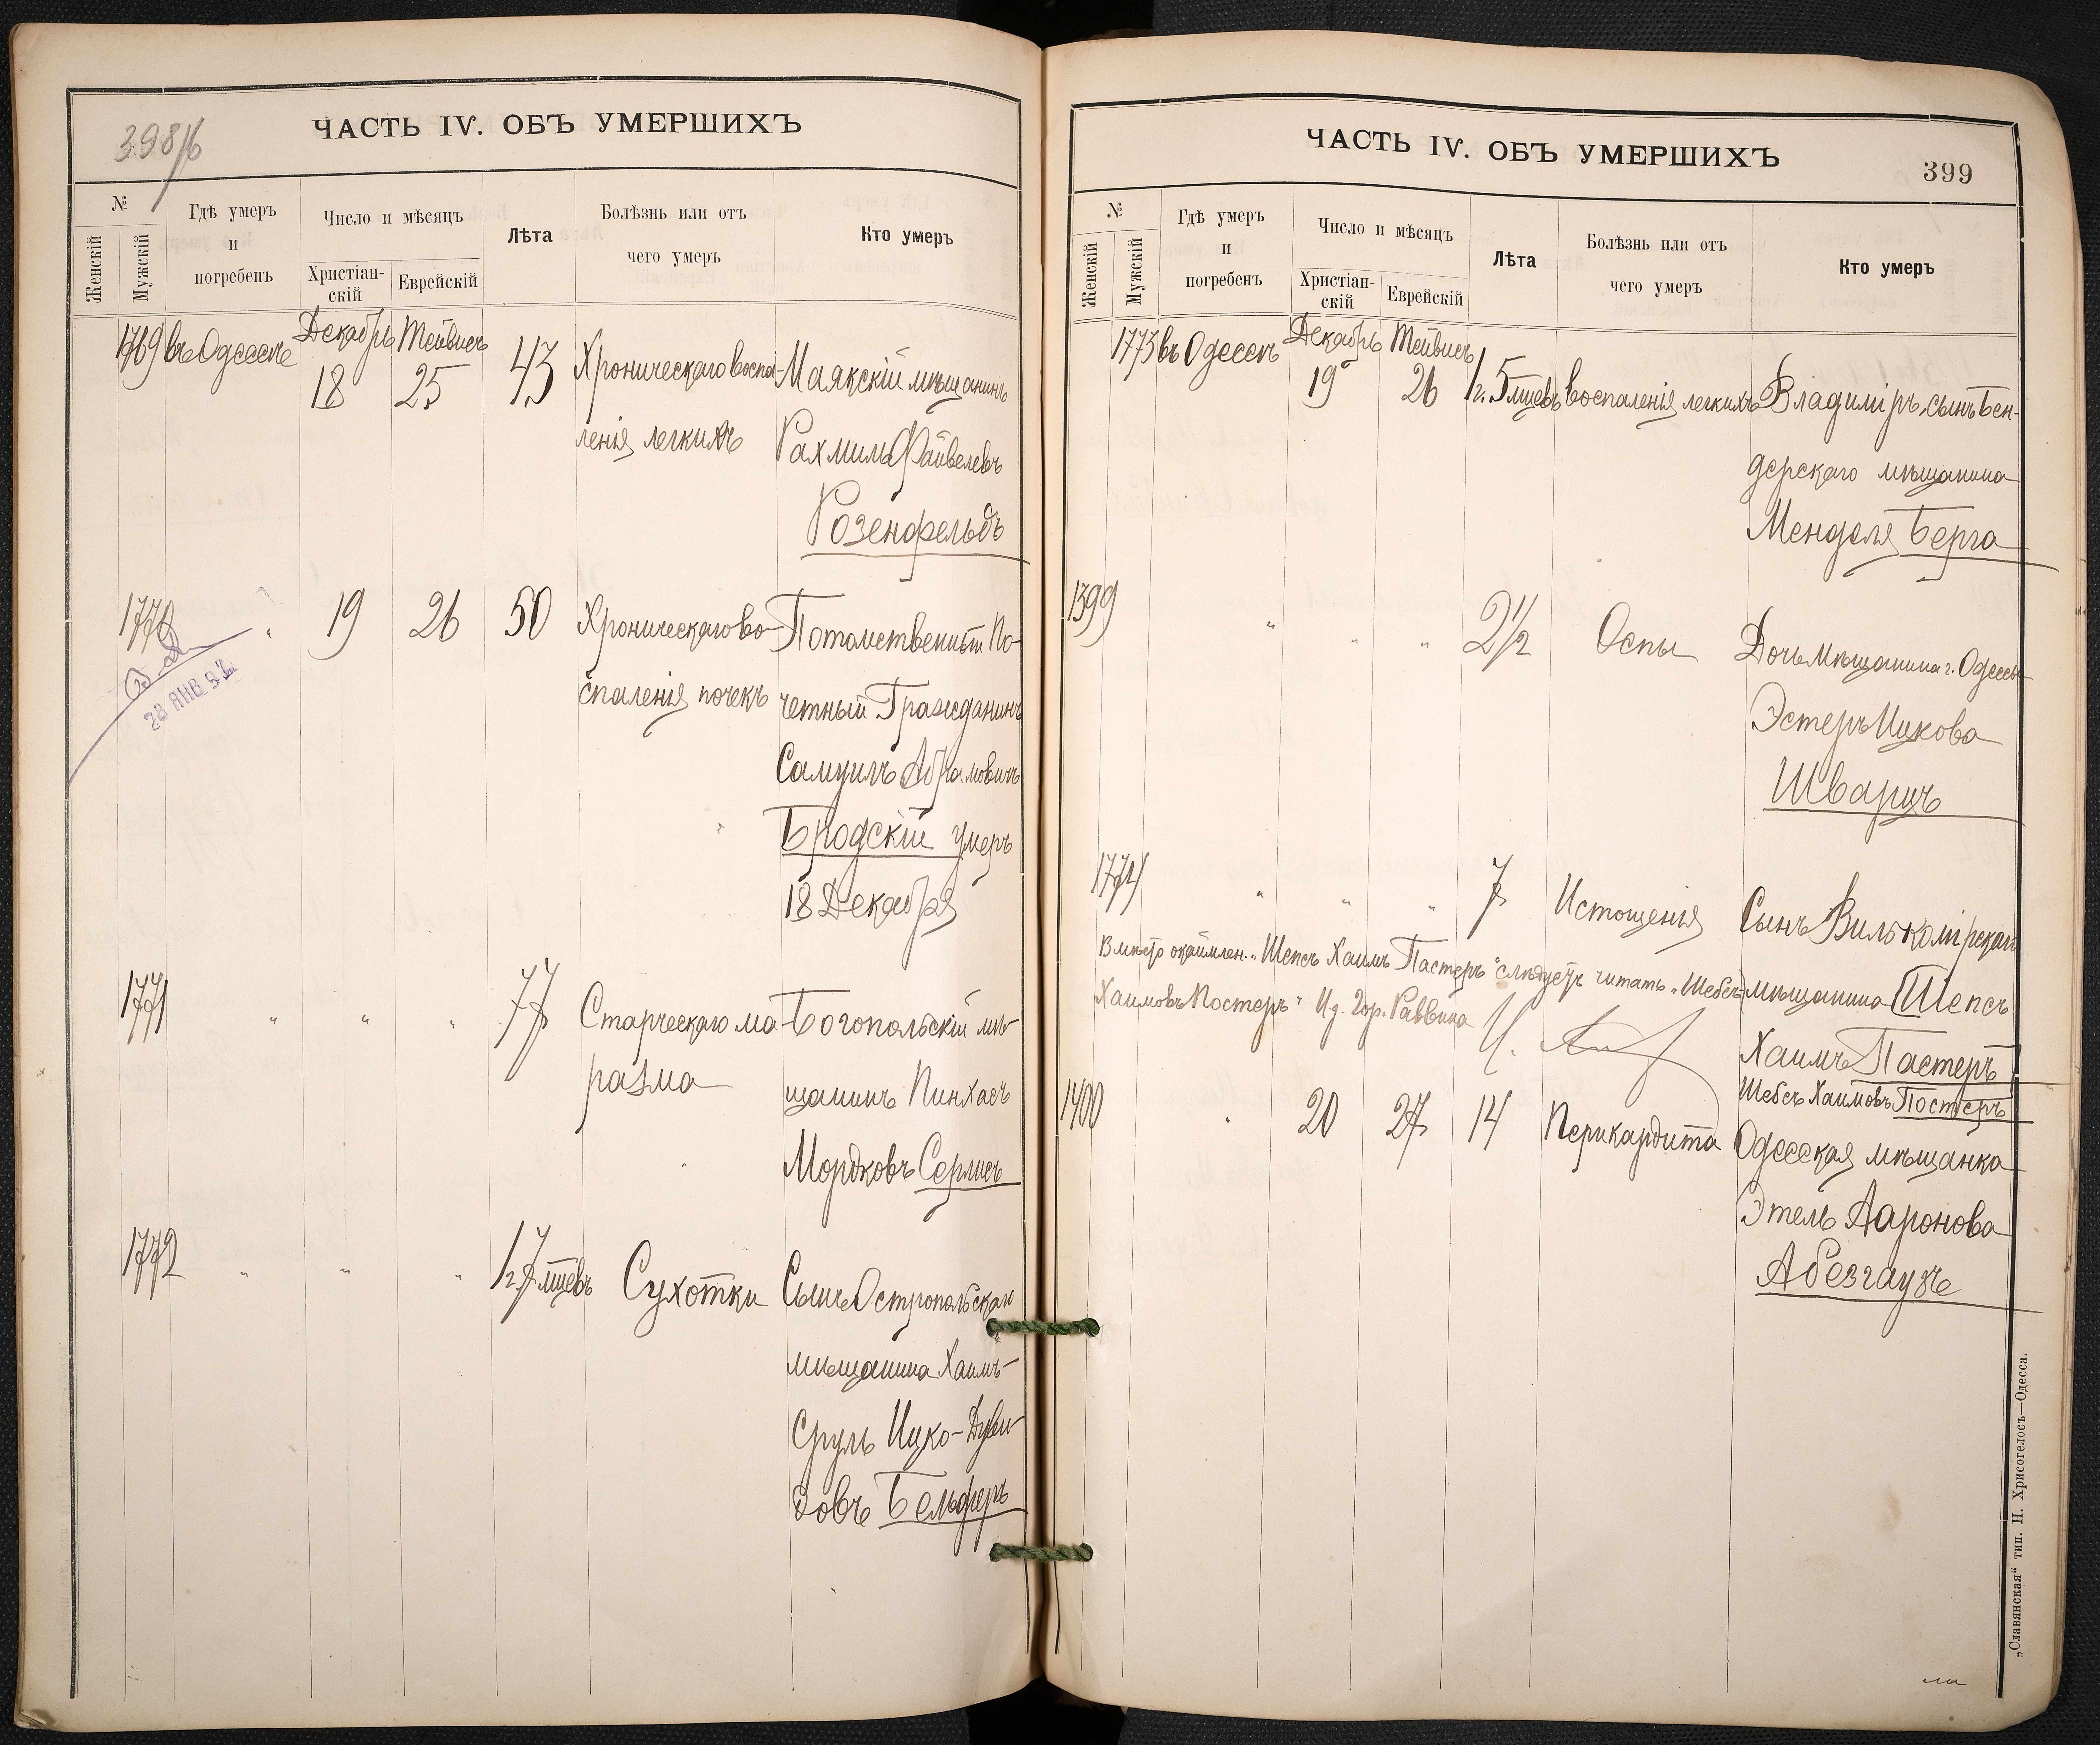 398/б
ЧАСТЬ IV. ОБЪ УМЕРШИХЪ
№
Женскій
Мужскій
Гдѣ умеръ
и
погребенъ
Число и мѣсяцъ
Христіан-
скій
Еврейскій
Лѣта
Болѣзнь или отъ
чего умеръ
Кто умеръ
1769 въ Одессѣ Декабрь 18 Тейвисъ 25 43 Хроническаго воспа- Маякскій мѣщанинъ
ленія легкихъ Рахмиль Файвелевъ
Розенфельдъ
1770 " 19 26 50 Хроническаго во- Потомственный По-
спаленія почекъ четный Гражданинъ
28 ЯНВ 9
Самуилъ Абрамовичъ
Бродскій умеръ
18 Декабря
1771 " " " 77 Старческаго ма- Богопольскій мѣ-
разма щанинъ Пинхасъ
Мордковъ Серлисъ
1772 " " " 1 г. 7 мцевъ Сухотки Сынъ Остропольскаго
мѣщанина Хаимъ-
Сруль Ицко-Дуви-
довъ Бельферъ
ЧАСТЬ IV. ОБЪ УМЕРШИХЪ
399
№
Женскій
Мужскій
Гдѣ умеръ
и
погребенъ
Число и мѣсяцъ
Христіан-
скій
Еврейскій
Лѣта
Болѣзнь или отъ
чего умеръ
Кто умеръ
1773 въ Одессѣ Декабрь 19 Тейвисъ 26 1 г. 5 мцевъ воспаленія легкихъ Владиміръ, сынъ Бен-
дерскаго мѣщанина
Менделя Берга
1399 " " " 2 1/2 Оспы Дочь мѣщанина г. Одессы
Эстеръ Ицкова
Шварцъ
1774 " " " 7 Истощенія Сынъ Вилькомірскаго
мѣщанина Шепсъ
Хаимъ Пастеръ
Шебсъ Хаимовъ Постеръ
Вмѣсто окаймлен. „Шепсъ Хаимъ Пастеръ" слѣдуетъ читать „Шебсъ
Хаимовъ Постеръ" И.д. Гор. Раввина
1400 " 20 27 14 Перикардита Одесская мѣщанка
Этель Ааронова
Абезгаузъ
„Славянская" тип. Н. Хрисогелосъ—Одесса.